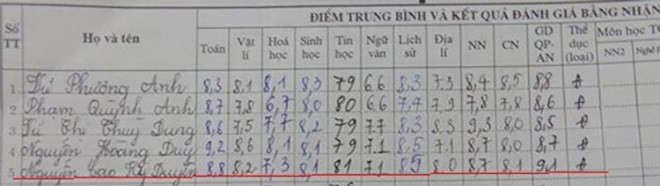 ĐIỂM TRUNG BÌNH VÀ KẾT QUẢ ĐÁNH GIÁ BẰNG NHẬN
Số TT Họ và tên Toán Vật lí Hoá học Sinh học Tin học Ngữ văn Lịch sử Địa lí NN CN GD QP-AN Thể dục (loại) Môn học NN2 Nghề
1 Phương Anh 8,3 8,1 8,1 8,3 79 6.6 8.3 7.3 8,4 8,5 8,8 đ
2 Phạm Quỳnh Anh 8,7 7,8 6,7 8,0 80 6.6 7.4 7.9 7,8 7,8 8,6 đ
3 Từ Thị Thuỳ Dung 8,6 7,5 7,7 8,2 79 7.7 8,3 8.3 9,3 8,0 8,5 đ
4 Nguyễn Hoàng Duy 9,2 8,6 8,1 8,1 79 7.1 8.5 7.1 8,7 8,0 8,7 đ
5 Nguyễn Cao Kỳ Duyên 8,8 8,2 7,3 8,1 81 7.1 8,5 8.0 8,7 8,1 9,1 đ